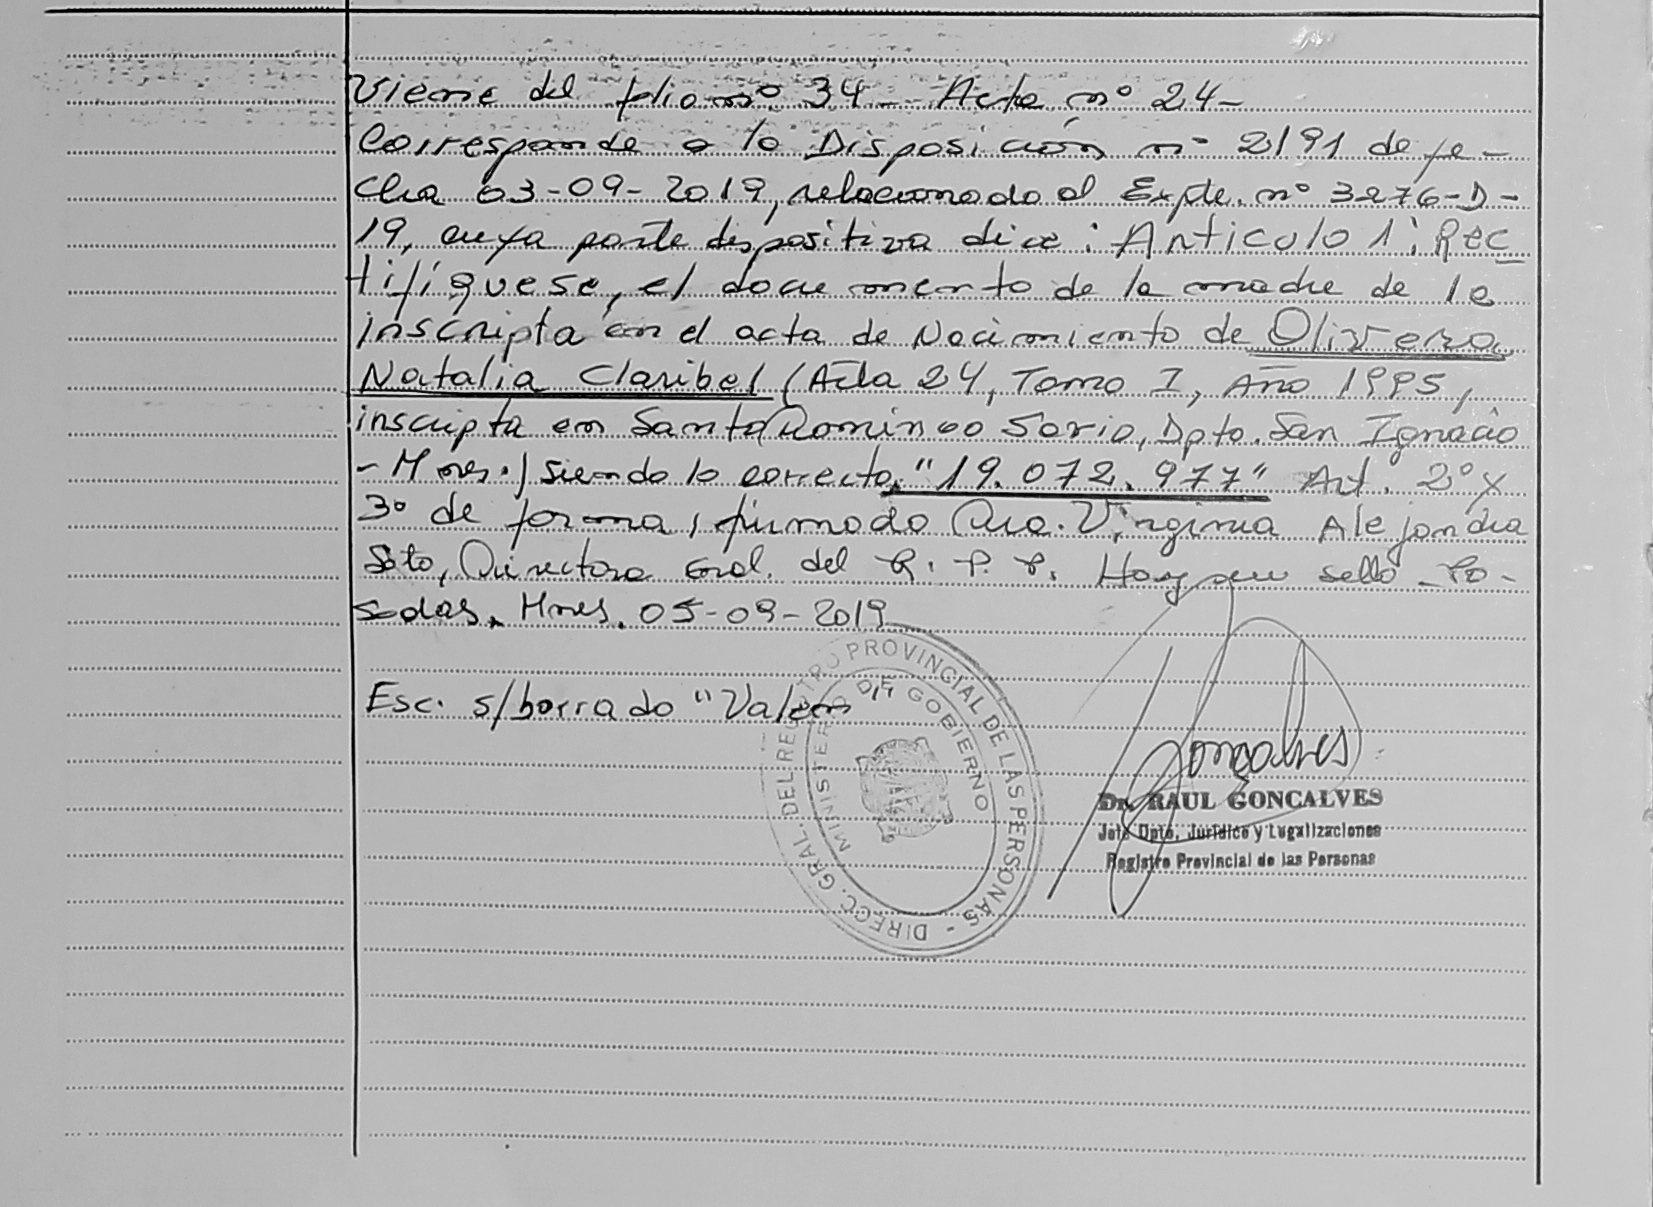 Viene del folio nº 34 - Acta nº 24-
Corresponde a la Disposición nº 2191 de fe-
cha 03-09-2019, relacionado al Expte. nº 3276-D-
19, cuya parte dispositiva dice: Articulo 1: Rec
tifíquese, el documento de la madre de la
inscripta en el acta de Nacimiento de Olivera
Natalia Claribel (Acta 24, Tomo I, Año 1995,
inscripta en Santo Domingo Savio, Dpto. San Ignacio
- Mnes.) siendo lo correcto "19.072.977" Art. 2º y
3º de forma, firmado Dra. Virginia Alejandra
Soto, Directora Gral. del R. P. P. Hay un sello - Po-
sadas. Mnes. 05-09-2019
Esc. s/borrado "Valen"
DIRECC. GRAL. DEL REGISTRO PROVINCIAL DE LAS PERSONAS -
MINISTERIO DE GOBIERNO
Gonçalves
Dr. RAUL GONCALVES
Jefe Dpto. Jurídico y Legalizaciones
Registro Provincial de las Personas